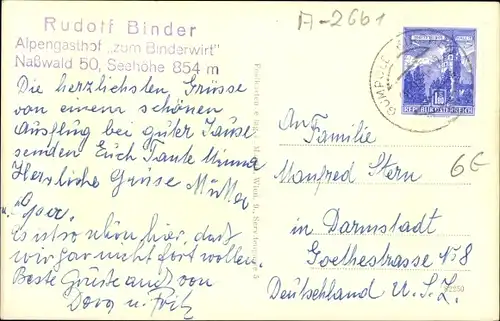 Rudolf Binder
Alpengasthof „zum Binderwirt"
Naßwald 50, Seehöhe 854 m
A-2661
REPUBLIK ÖSTERREICH
Die herzlichsten Grüsse
von einem schönen
Ausflug bei guter Jause
senden Euch Tante Minna
Herzliche Grüsse Mutter
u. Opa.
Es ist so schön hier, daß
wir gar nicht fort wollen
Beste Grüsse auch von
Dora u. Fritz
An Familie
Manfred Stern
in Darmstadt
Goethestrasse No 8
Deutschland
6€